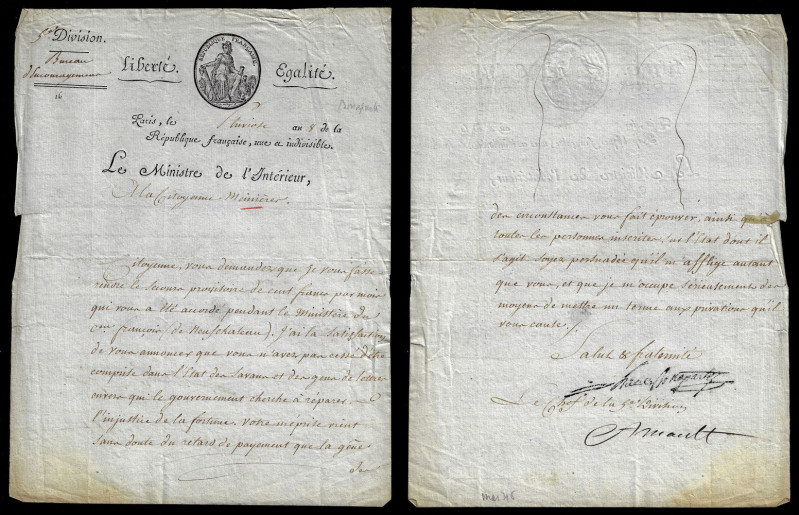 5e. Division.
Bureau
d'Encouragement
16
Liberté. Egalité.
REPUBLIQUE FRANÇAISE.
Paris, le Pluviose an 8 de la
République française, une et indivisible.
Le Ministre de l'Intérieur,
A la Citoyenne
Citoyenne, vous demandez que je vous fasse
rendre le secours provisoire de cent francs par mois
qui vous a été accordé pendant le Ministère du
cen françois (de Neufchateau). J'ai la satisfaction
de vous annoncer que vous n'avez pas cessé d'être
comprise dans l'Etat des Savans et des gens de lettres
envers qui le gouvernement cherche à réparer
l'injustice de la fortune. Votre méprise vient
sans doute du retard de payement que la gêne
des
des circonstances vous fait éprouver, ainsi qu'à
toutes les personnes inscrites sur l'Etat dont il
s'agit. Soyez persuadée qu'il m'afflige autant
que vous, et que je m'occupe sérieusement des
moyens de mettre un terme aux privations qu'il
vous coute.
Salut & fraternité
Le Chef de la 5e. Division
Arnault